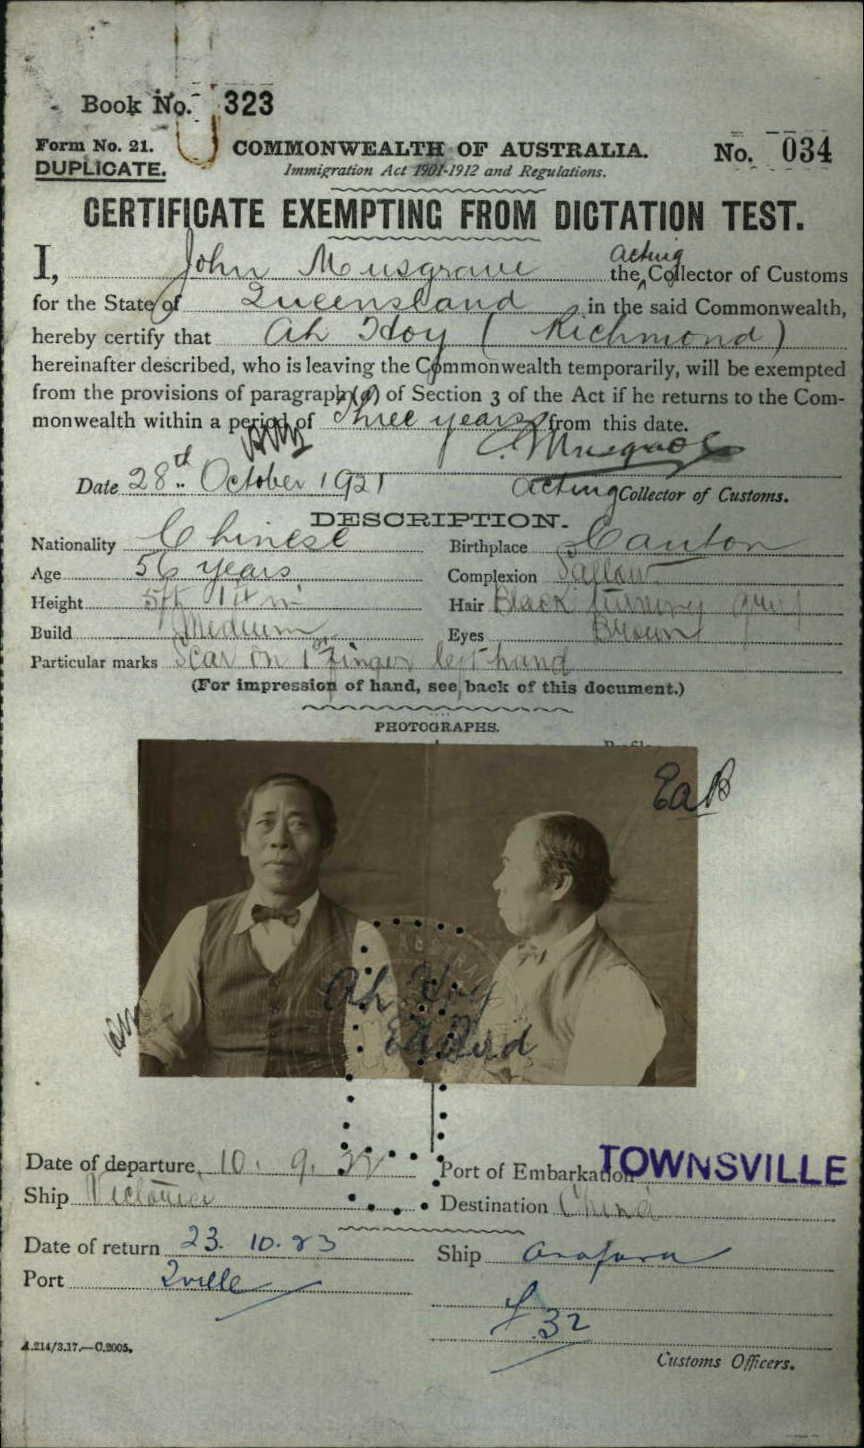 Book No. 323
Form No. 21. COMMONWEALTH OF AUSTRALIA. No. 034
DUPLICATE. Immigration Act 1901-1912 and Regulations.
CERTIFICATE EXEMPTING FROM DICTATION TEST.
I, John Musgrave the Acting Collector of Customs
for the State of Queensland in the said Commonwealth,
hereby certify that Ah Hoy (Richmond)
hereinafter described, who is leaving the Commonwealth temporarily, will be exempted
from the provisions of paragraph (a) of Section 3 of the Act if he returns to the Com-
monwealth within a period of Three years from this date.
Date 28th October 1921 Acting Collector of Customs.
DESCRIPTION.
Nationality Chinese Birthplace Canton
Age 56 years Complexion Sallow
Height 5ft Hair Black turning grey
Build Medium Eyes Brown
Particular marks Scar on 1st finger left hand
(For impression of hand, see back of this document.)
PHOTOGRAPHS.
Ah Hoy
Date of departure 10. 9. 22 Port of Embarkation TOWNSVILLE
Ship Victoria Destination China
Date of return 23. 10. 23 Ship Arafura
Port Tville
32
A.214/3.17.—C.2005. Customs Officers.